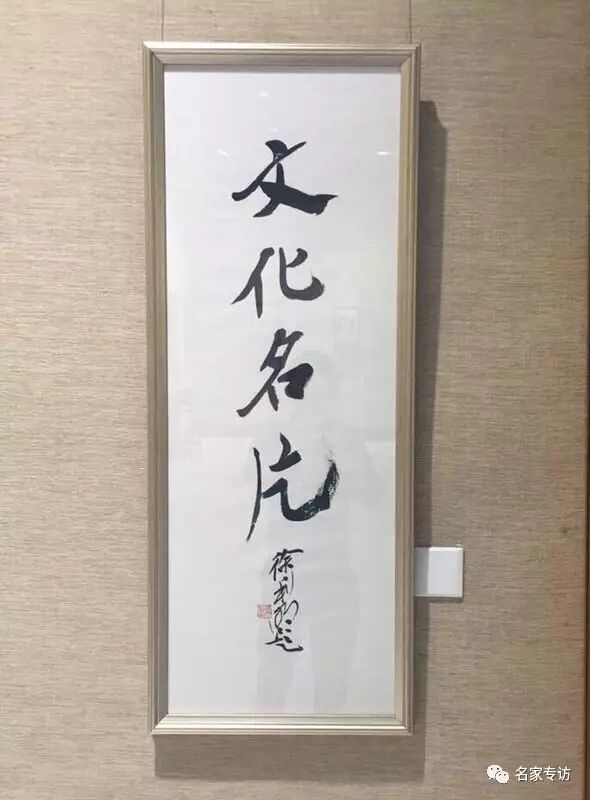 文化名片
徐利明题
名家专访